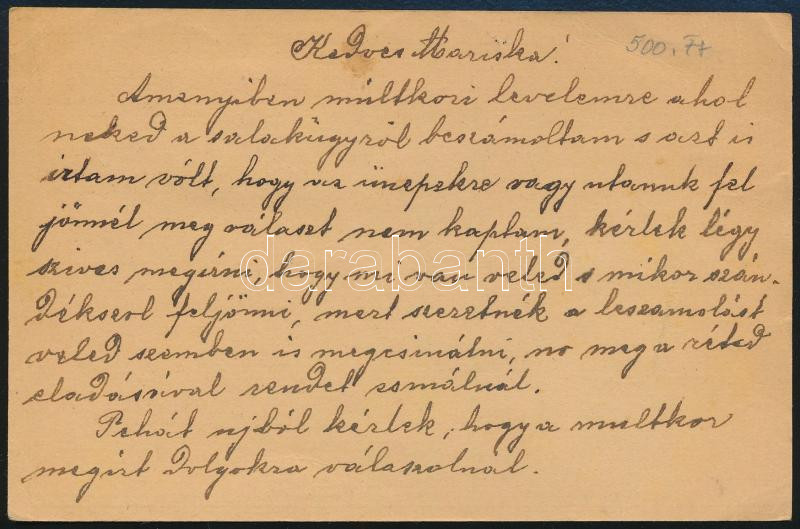 Kedves Mariska!
500.Ft
Amenyiben múltkori levelemre ahol
neked a salakügyről beszámoltam s azt is
irtam vólt, hogy az ünepekre vagy utanuk fel
jönnél meg választ nem kaptam, kérlek légy
szives megirni, hogy mi van veled s mikor szán-
dékserol feljönni, mert szeretnék a leszamolást
veled szemben is megcsinálni, no meg a réted
eladásával rendet csinálnál.
Tehát ujból kérlek, hogy a multkor
megirt dolgokra válaszolnál.
darabanth